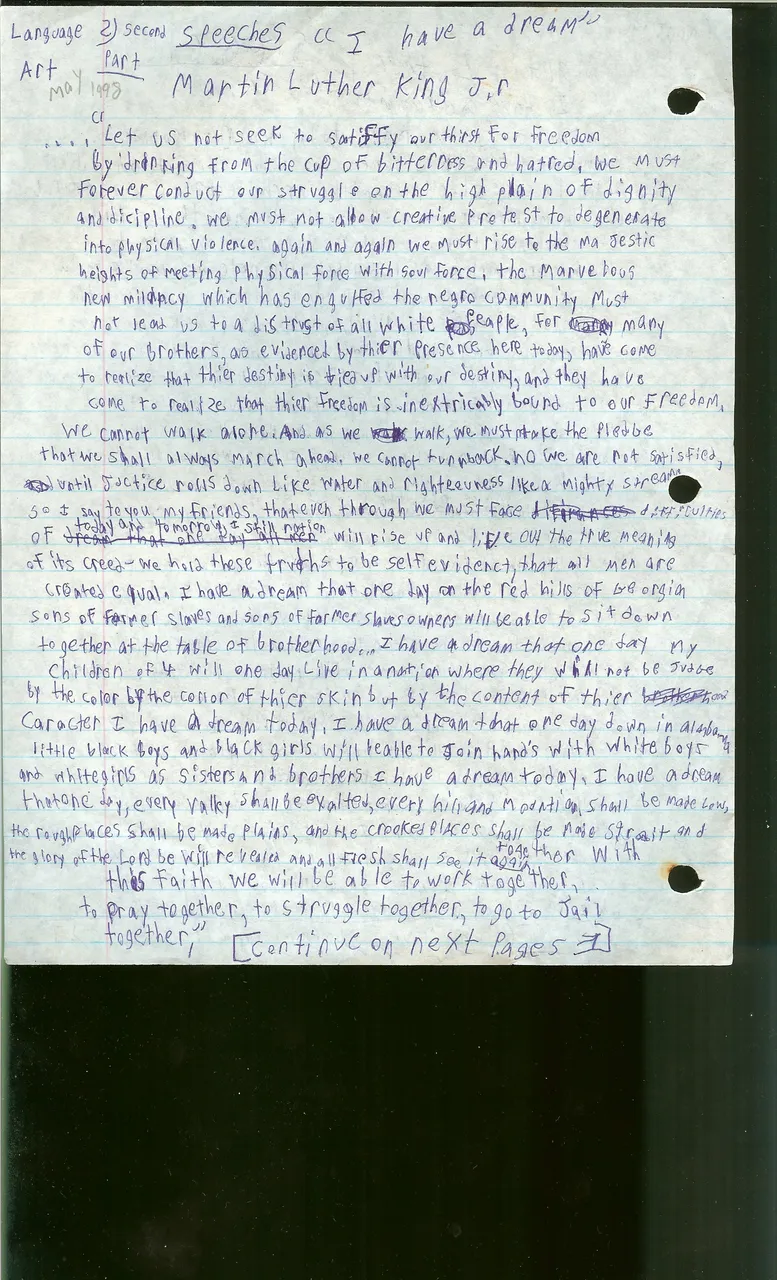 Language 2) second speeches " I have a dream"
Art Part
May 1998 Martin Luther King J.r
"
.... Let us not seek to satisffy our thirst for freedom
by drinking from the cup of bitterness and hatred, we must
forever conduct our struggle on the high plain of dignity
and dicipline. we must not allow creative protest to degenerate
into physical violence. again and again we must rise to the majestic
heights of meeting physical force with soul force, the marvelous
new militancy which has engulfed the negro community must
not lead us to a distrust of all white people, for many
of our brothers, as evidenced by thier presence here today, have come
to realize that thier destiny is tied up with our destiny, and they have
come to realize that thier freedom is inextricably bound to our freedom.
we cannot walk alone. And as we walk, we must make the pledge
that we shall always march ahead. we cannot turn back. no we are not satisfied,
until Justice rolls down like water and righteeuvness like a mighty stream
so I say to you, my friends, that even through we must face difficulties
of today and tomorrow, I still nation
dream that one day all men will rise up and live out the true meaning
of its creed - we hold these truths to be self evidenct, that all men are
created equal. I have a dream that one day on the red hills of Georgia
sons of farmer slaves and sons of farmer slaves owners will be able to sit down
together at the table of brotherhood... I have a dream that one day my
children of 4 will one day live in a nation where they will not be Judge
by the color by the corlor of thier skin but by the content of thier
Caracter I have a dream today. I have a dream that one day down in alabama
little black boys and black girls will beable to Join hand's with white boys
and white girls as sisters and brothers I have a dream today. I have a dream
that one day, every valley shall be exalted, every hill and Mountian shall be made low,
the rough places shall be made plains, and the crooked places shall be made strait and
the glory of the Lord be will revealed and all flesh shall see it together With
again
this faith we will be able to work together,
to pray together, to struggle together, to go to Jail
together,"
[continue on next pages]